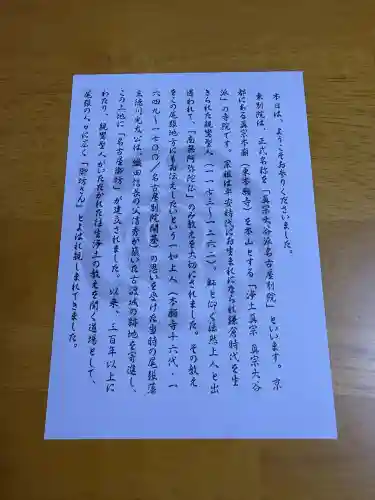 本日は、ようこそお参りくださいました。
東別院は、正式名称を「真宗大谷派名古屋別院」といいます。京
都にある真宗本廟（東本願寺）を本山とする「浄土真宗 真宗大谷
派」の寺院です。宗祖は平安時代にお生まれになられ鎌倉時代を生
きられた親鸞聖人（一一七三～一二六二）、師と仰ぐ法然上人と出
遇われて、「南無阿弥陀仏」のみ教えを大切にされました。その教え
をこの尾張地方にもお伝えしたいという一如上人（本願寺十六代・一
六四九～一七〇〇／名古屋別院開基）の思いを受けた当時の尾張藩
主徳川光友公は、織田信長の父信秀が築いた古渡城の跡地を寄進し、
この土地に「名古屋御坊」が建立されました。以来、三百年以上に
わたり、親鸞聖人がいただかれた往生浄土の教えを聞く道場として、
尾張の人々に広く「御坊さん」とよばれ親しまれてきました。